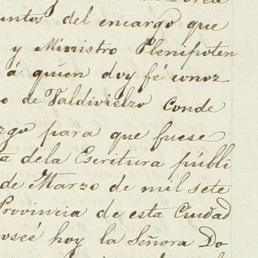 untos del encargo que
y Ministro Plenipoten
á quien doy fé conoz
o de Valdivielzo Conde
rgo para que fuese
a dela Escritura públi
de Marzo de mil sete
Provincia de esta Ciudad
oseé hoy la Señora Do